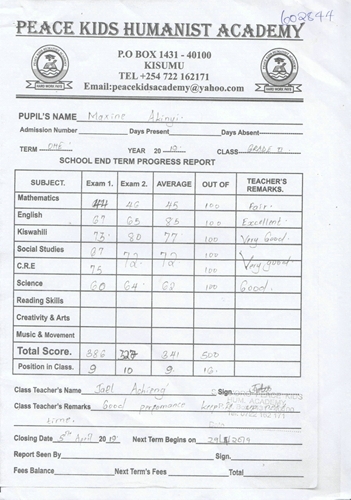 602844
PEACE KIDS HUMANIST ACADEMY
P.O BOX 1431 - 40100
KISUMU
TEL +254 722 162171
Email:peacekidsacademy@yahoo.com
HARD WORK PAYS HARD WORK PAYS
PUPIL'S NAME Maxine Akinyi
Admission Number Days Present Days Absent
TERM ONE YEAR 2019 CLASS GRADE
SCHOOL END TERM PROGRESS REPORT
SUBJECT. Exam 1. Exam 2. AVERAGE OUT OF TEACHER'S REMARKS.
Mathematics 46 45 100 Fair.
English 67 65 85 100 Excellent.
Kiswahili 73 80 77 100 Very Good
Social Studies 67 72 72 100
C.R.E 75 Very good
Science 60 64 62 100 Good.
Reading Skills
Creativity & Arts
Music & Movement
Total Score. 386 327 341 500
Position in Class. 9 10 9
Class Teacher's Name Jael Achieng Sign
Class Teacher's Remarks Good performance
Closing Date 5th April 2019 Next Term Begins on 29/ /2019
Report Seen By Sign.
Fees Balance Next Term's Fees Total